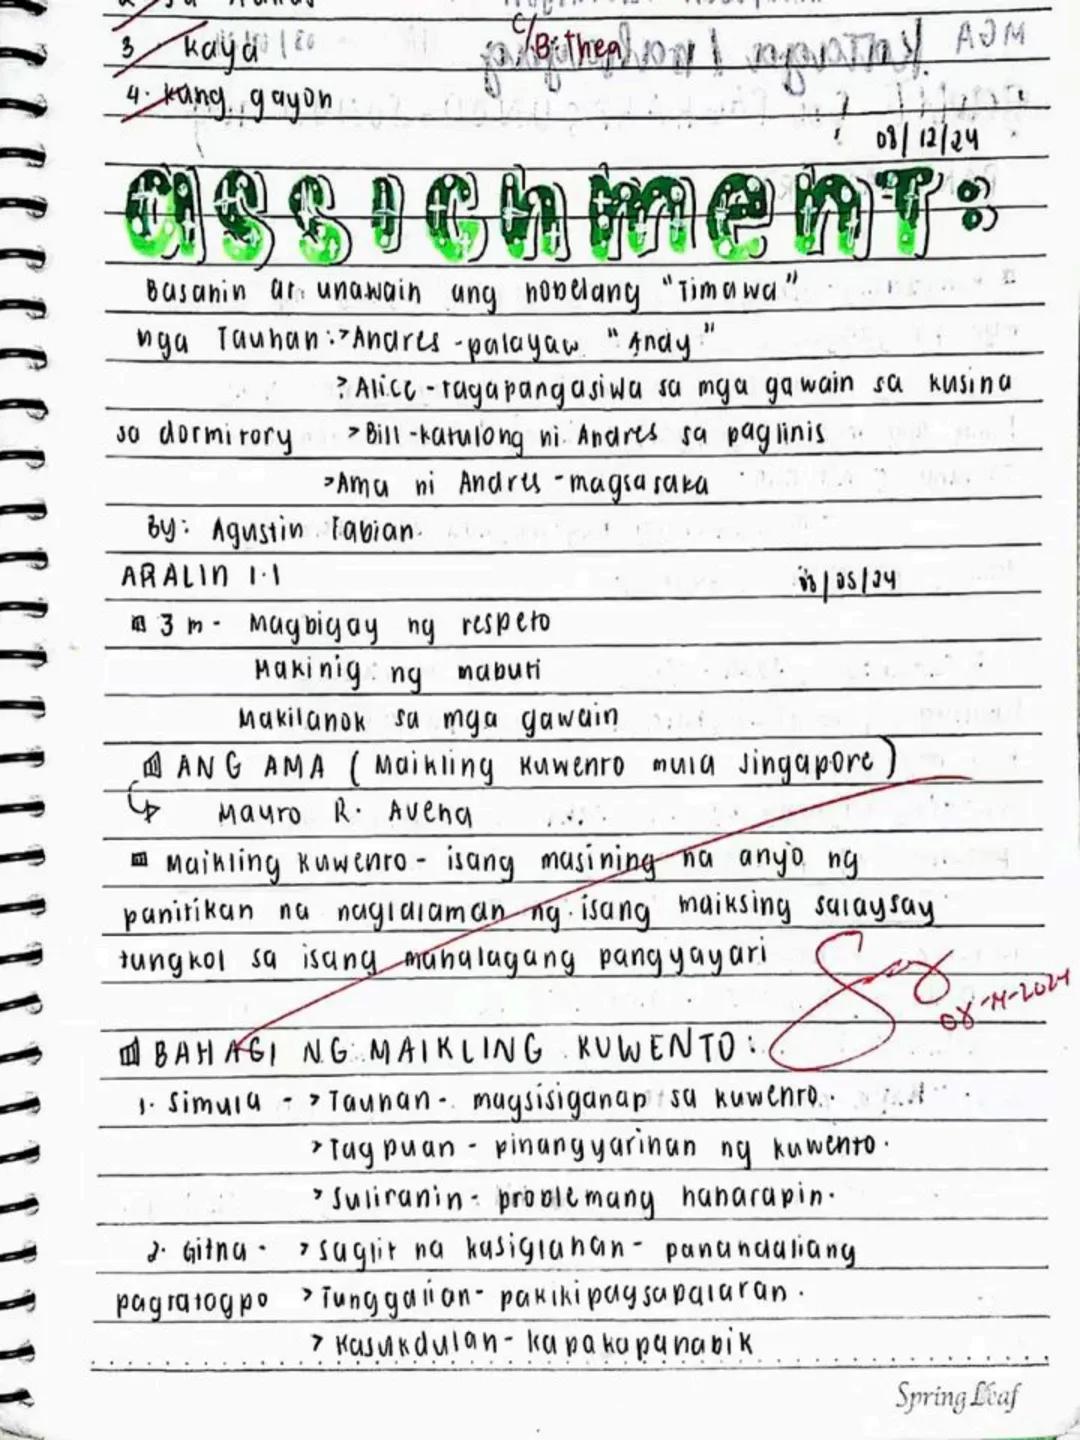 3 kaya
C/Bithea
4. kung gayon
08/12/24
assichment:
Basahin at unawain ang nobelang "Timawa"
mga Tauhan: > Andres - palayaw "Andy"
> Alice - tagapangasiwa sa mga gawain sa kusina
sa dormitory > Bill - katulong ni Andres sa paglinis
> Ama ni Andres - magsasaka
By: Agustin Fabian
ARALIN 1.1
08/05/24
3 m - Magbigay ng respeto
Makinig ng mabuti
Makilahok sa mga gawain
ANG AMA (Maikling kuwento mula Singapore)
Mauro R. Avena
Maikling kuwento - isang masining na anyo ng
panitikan na naglalaman ng isang maiksing salaysay
tungkol sa isang mahalagang pangyayari
BAHAGI NG MAIKLING KUWENTO:
1. Simula - > Tauhan - magsisiganap sa kuwento.
> Tagpuan - pinangyarihan ng kuwento.
> Suliranin - problemang haharapin.
2. Gitna - > saglit na kasiglahan - panandaliang
pagtatagpo > Tunggalian - pakikipagsapalaran.
> Kasukdulan - kapakapanabik
Spring Leaf